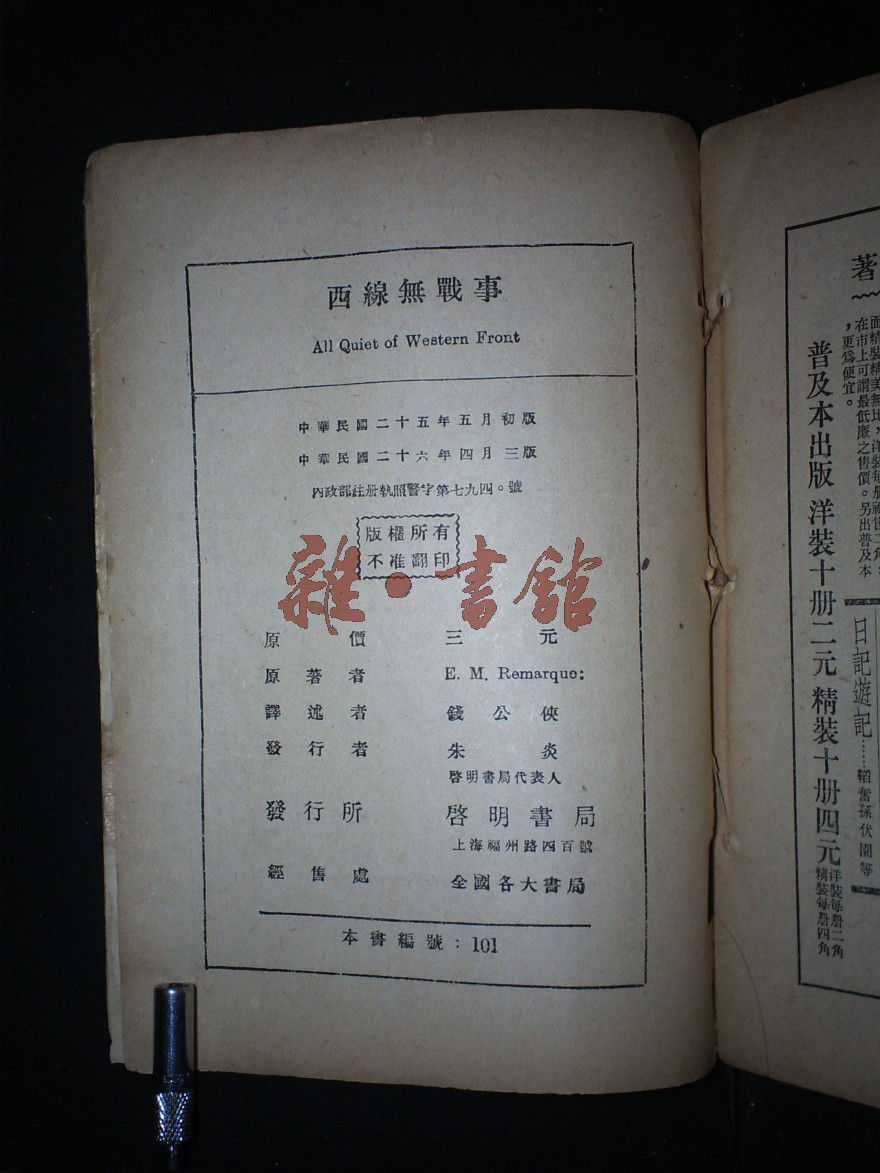 西線無戰事
All Quiet of Western Front
中華民國二十五年五月初版
中華民國二十六年四月三版
內政部註册執照警字第七九四。號
版權所有
不准翻印
雜·書館
原價 三元
原著者 E. M. Remarque:
譯述者 錢公俠
發行者 朱炎
啓明書局代表人
發行所 啓明書局
上海福州路四百號
經售處 全國各大書局
本書編號：101
著
面精裝精美無比，洋裝每册祗售二角，
在市上可謂最低廉之售價。另出普及本
，更爲便宜。
普及本出版 洋裝十册二元 精裝十册四元
洋裝每册二角
精裝每册四角
日記遊記……韜奮孫伏園等